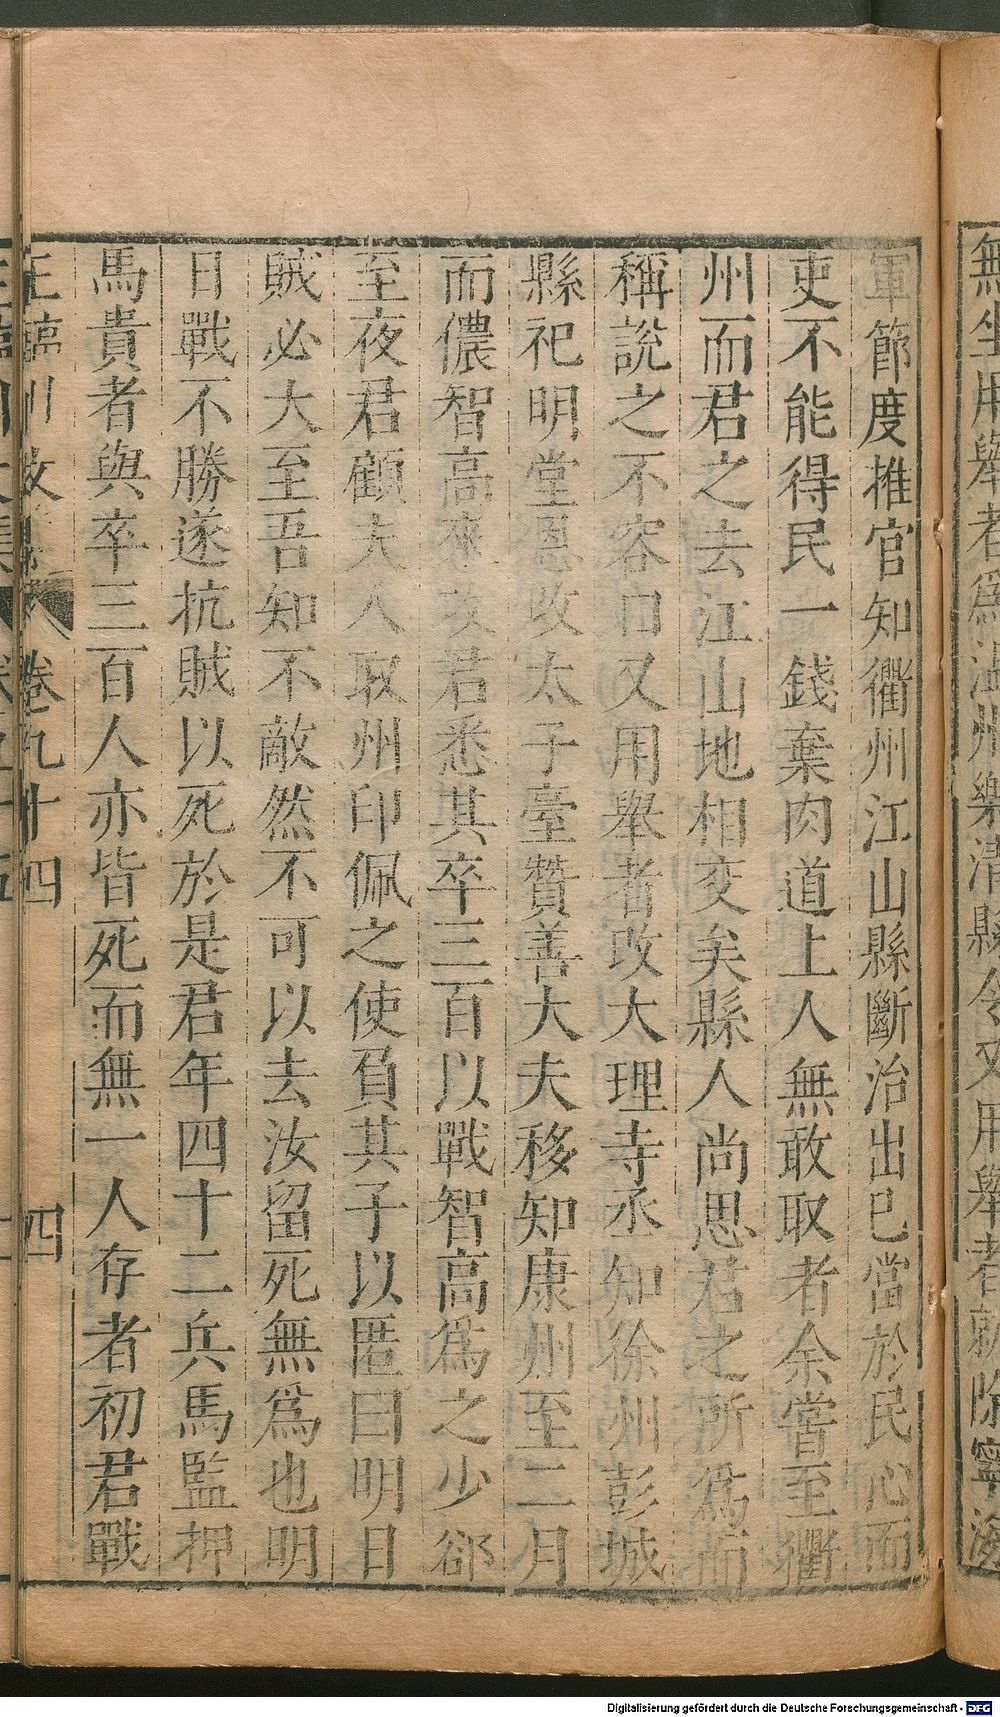 無坐用舉者爲温州樂清縣令又用舉者就除寧海
軍節度推官知衢州江山縣斷治出已當於民心而
吏不能得民一錢棄肉道上人無敢取者余嘗至衢
州而君之去江山地相交矣縣人尚思君之所爲而
稱說之不容口又用舉者改大理寺丞知徐州彭城
縣祀明堂恩改太子臺贊善大夫移知康州至二月
而儂智高來攻君悉其卒三百以戰智高爲之少郤
至夜君顧夫人取州印佩之使負其子以匿曰明日
賊必大至吾知不敵然不可以去汝留死無爲也明
日戰不勝遂抗賊以死於是君年四十二兵馬監押
馬貴者與卒三百人亦皆死而無一人存者初君戰
王臨川文集 卷九十四 四
Digitalisierung gefördert durch die Deutsche Forschungsgemeinschaft - DFG